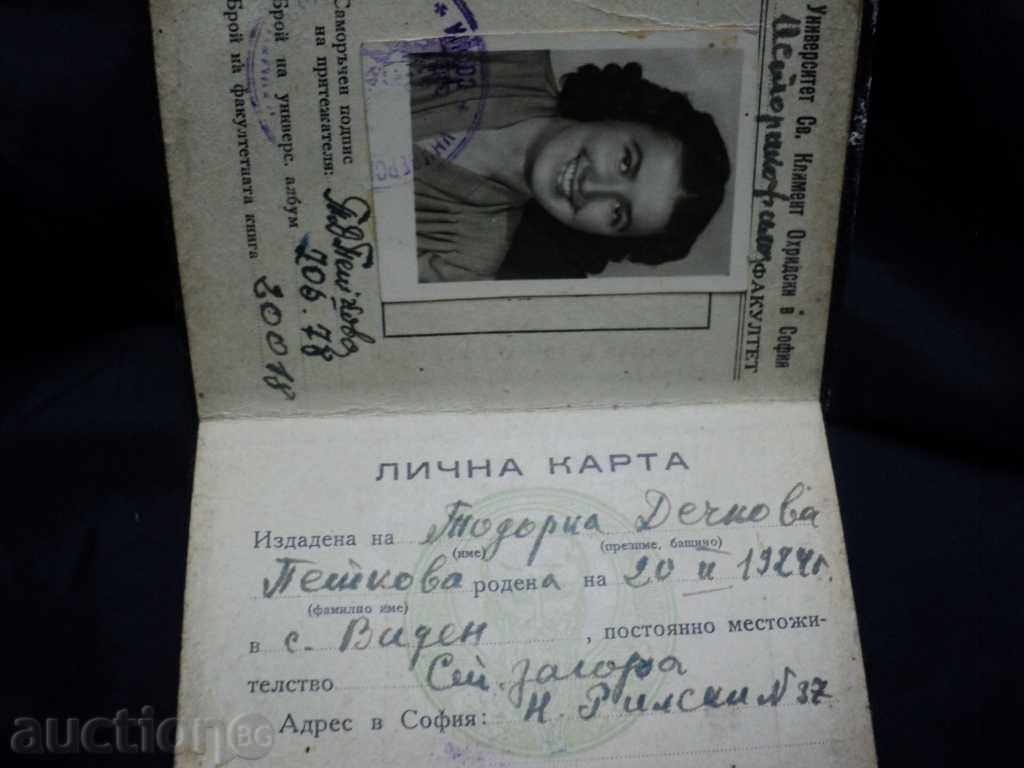 Университет Св. Климент Охридски в София
ФАКУЛТЕТ
Саморъчен подпис
на притежателя:
Брой на универс. албум 70678
Брой на факултетната книга 30018
ЛИЧНА КАРТА
Издадена на Тодорка Дечкова
(име) (презиме, бащино)
Пешкова родена на 20 II 1924г.
(фамилно име)
в с. Виден , постоянно местожи-
телство Ст. Загора
Адрес в София: Н. Рилски № 37
auction BG